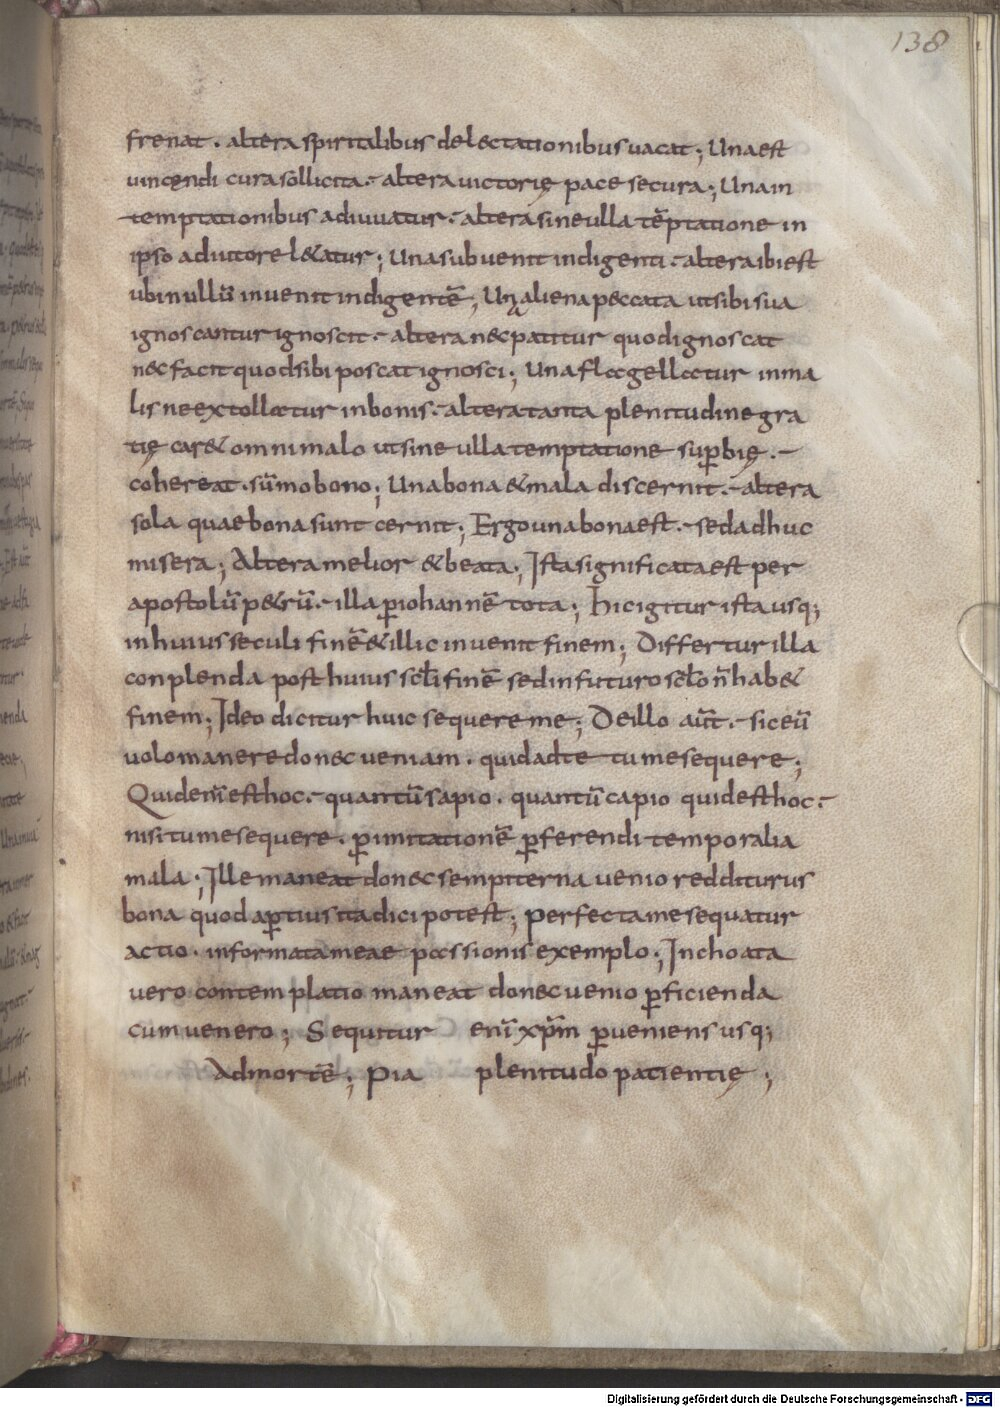 138
frenat . altera spiritalibus delectationibus uacat ; Una est
uincendi cura sollicita . altera uictorię pace secura ; Una in
temptationibus adiuuatur . altera sine ulla tēptatione in
ipso adiutore l&atur ; Una subuenit indigenti . altera ibi est
ubi nullū inuenit indigentē ; Una aliena peccata ut sibi sua
ignoscantur ignoscit . altera nec patitur quod ignoscat
nec facit quod sibi poscat ignosci ; Una flagellatur in ma
lis ne extollatur in bonis . altera tanta plenitudine gra
tię car& omni malo ut sine ulla temptatione sup̄bię .
cohereat . sūmo bono ; Una bona & mala discernit . altera
sola quae bona sunt cernit ; Ergo una bona est . sed adhuc
misera ; Altera melior & beata ; Ista significata est per
apostolū p&rū . illa p̄ iohannē tota ; hic igitur ista usq;
in huius seculi finē & illic inuenit finem ; Differtur illa
conplenda post huius scl̄i finē sed in futuro scl̄o n̄ hab&
finem ; Ideo dicitur huic sequere me ; De illo aūt . sic eū
uolo manere donec ueniam . quid ad te tu me sequere ;
Quid enī est hoc . quantū sapio . quantū capio quid est hoc .
nisi tu me sequere . p̄ imitationē p̄ferendi temporalia
mala ; Ille maneat donec sempiterna uenio redditurus
bona quod ap̄tius ita dici potest ; perfecta me sequatur
actio . informata meae passionis exemplo ; Inchoata
uero contemplatio maneat donec uenio p̄ficienda
cum uenero ; Sequitur enī xp̄m p̄ueniens usq;
Ad mortē ; pia plenitudo patientię ;
Digitalisierung gefördert durch die Deutsche Forschungsgemeinschaft - DFG